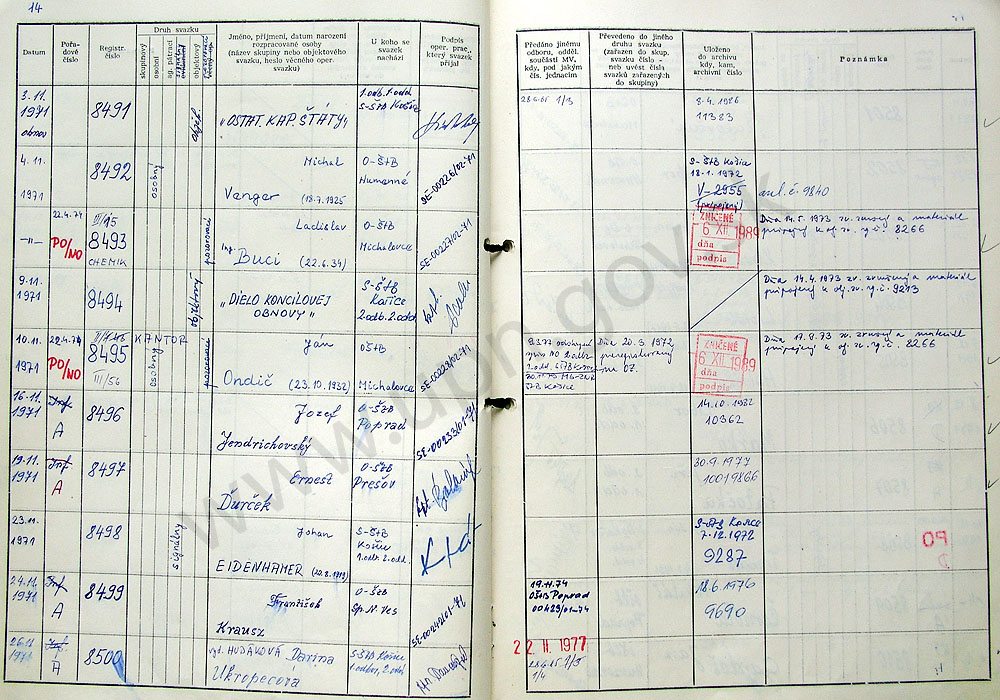 14
Datum
Pořa-
dové
číslo
Registr.
číslo
Druh svazku
skupinový
osobní
ag. pátrací
signální
objektový
Jméno, příjmení, datum narození
rozpracované osoby
(název skupiny nebo objektového
svazku, heslo věcného oper.
svazku)
U koho se
svazek
nachází
Podpis
oper. prac.,
který svazek
přijal
Předáno jinému
odboru, odděl.
součásti MV,
kdy, pod jakým
čís. jednacím
Převedeno do jiného
druhu svazku
(zařazen do skup.
svazku číslo -
neb uvést čísla
svazků zařazených
do skupiny)
Uloženo
do archivu
kdy, kam,
archivní číslo
Poznámka
3.11.
1971
obnov
8491
objekt.
"OSTAT. KAP. ŠTÁTY"
1.odb. 1.odd
S-ŠtB Košice
1/3
8.4.1986
11383
4.11.
1971
8492
osobný
Michal
Vanger (18.7.1925
O-ŠtB
Humenné
SE-00226/02-71
S-ŠtB Košice
18.1.1972
V-2955
(pripojený)
arch. č. 9840
-11-
22.4.74
PO/NO
III/15
8493
CHEMIK
pozorovací
Ladislav
Ing. Buci (22.6.34)
O-ŠtB
Michalovce
SE-00227/02-71
ZNIČENÉ
6 XII 1989
dňa
podpis
Dňa 14.5.1973 zv. zrušený a materiál
pripojený k obj. zv. r. č. 8266
9.11.
1971
8494
"DIELO KONCILOVEJ
OBNOVY"
S-ŠtB
Košice
2.odb. 2.odd
Dňa 14.4.1973 zv. zrušený a materiál
pripojený k obj. zv. r. č. 9213
10.11.
1971
22.4.74
PO/NO
8495
III/56
KANTOR
osobný
pozorovací
Ján
Ondič (23.10.1932)
OŠtB
Michalovce
SE-00228/02-71
Dňa 20.3.1972
ZNIČENÉ
6 XII 1989
dňa
podpis
Dňa 17.8.73 zv. zrušený a materiál
pripojený k obj. zv. r. č. 8266
16.11.
1971
Inf
A
8496
Jozef
Jendrichovský
O-ŠtB
Poprad
SE-00233/01-71
14.10.1982
10362
19.11.
1971
Inf
A
8497
Ernest
Ďurček
O-ŠtB
Prešov
30.9.1977
10019866
23.11.
1971
8498
signálny
Johan
EIDENHAMER
S-ŠtB
Košice
1.odb. 2.odd.
S-ŠtB Košice
7.12.1972
9287
PO
24.11.
1971
Inf
A
8499
František
Krausz
O-ŠtB
Sp. N. Ves
SE-00242/01-71
19.11.74
OŠtB Poprad
00429/01-74
18.6.1976
9690
26.11
1971
Inf.
A
8500
vyd. HUDÁKOVÁ Darina
Ukropecova
S-ŠtB Košice
1.odbor, 2.odd.
22.11.1977
1/3
1/4
www.upn.gov.sk